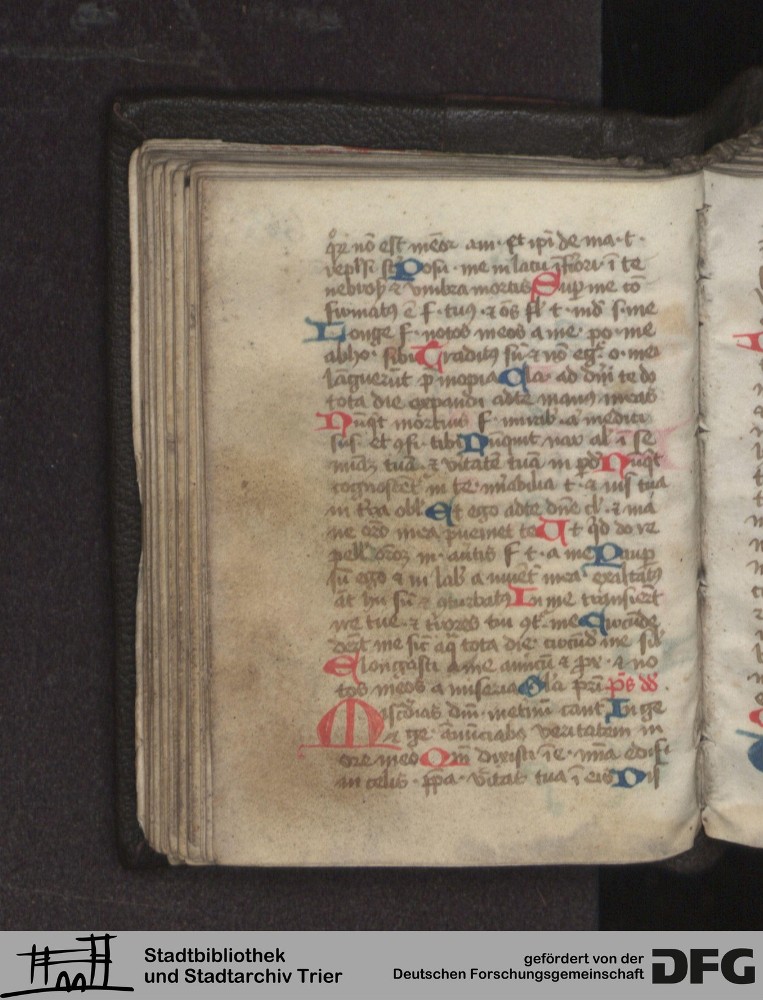 qr nō est meōr am. Et ipi de ma. t.
repulsi st Posu. me in lacu īferiori. ī te
nebrosꝭ ⁊ vmbra mortis Sup me cō
firmatꝰ ē f. tuꝰ. ⁊ oēs fl. t. ind. s. me
Longe f. notos meos a me. po. me
abho. sibi Traditꝰ sū ⁊ nō eg. o. mei
lāguerūt p inopia Cla. ad dn̄i te do
tota die expandi adte manꝰ meas
Nūqt mortuis f. mirib. a medici
sus. et ꝯfi. tibi Nūquit nar. al. ī se
m̄iaꝫ tuā. ⁊ v̄itatē tuā in pd Nūqt
cognoscēt in te. mirabilia t. ⁊ ius. tua
in t̄ra obl. Et ego adte dn̄e cl. ⁊ mā
ne or̄o mea pueniet te Ut qd do re
pell. or̄oꝫ m. aūtis f. t. a me Paup
sū ego ⁊ in lab. a iuuēt mea. exaltatꝰ
āt hu. sū ⁊ ꝯturbatꝰ In me transierūt
ire tue. ⁊ t̄rores tui ꝯt. me Circūde
der̄t me sic̄ aq̄ tota die. circūd. me sil.
Elongasti a me amicū ⁊ px. ⁊ no
tos meos a miseria Gl̄a pri p̄s dd.
Misc̄dias dn̄i. inetnū cant. In ge
⁊ ge. an̄ūciabo veritatem in
ore meo Qm̄ dixisti ī e. mīa edifi.
in celis. ppa. v̄itas tua ī eis Dis
Stadtbibliothek
und Stadtarchiv Trier
gefördert von der
Deutschen Forschungsgemeinschaft
DFG